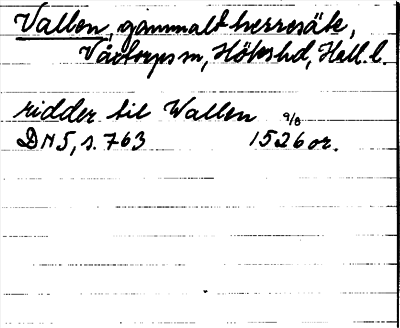 Vallen, gammalt herresäte,
Våxtorps sn, Höks hd, Hall. l.
ridder til Wallen 9/8
DN 5, s. 763 1526 or.